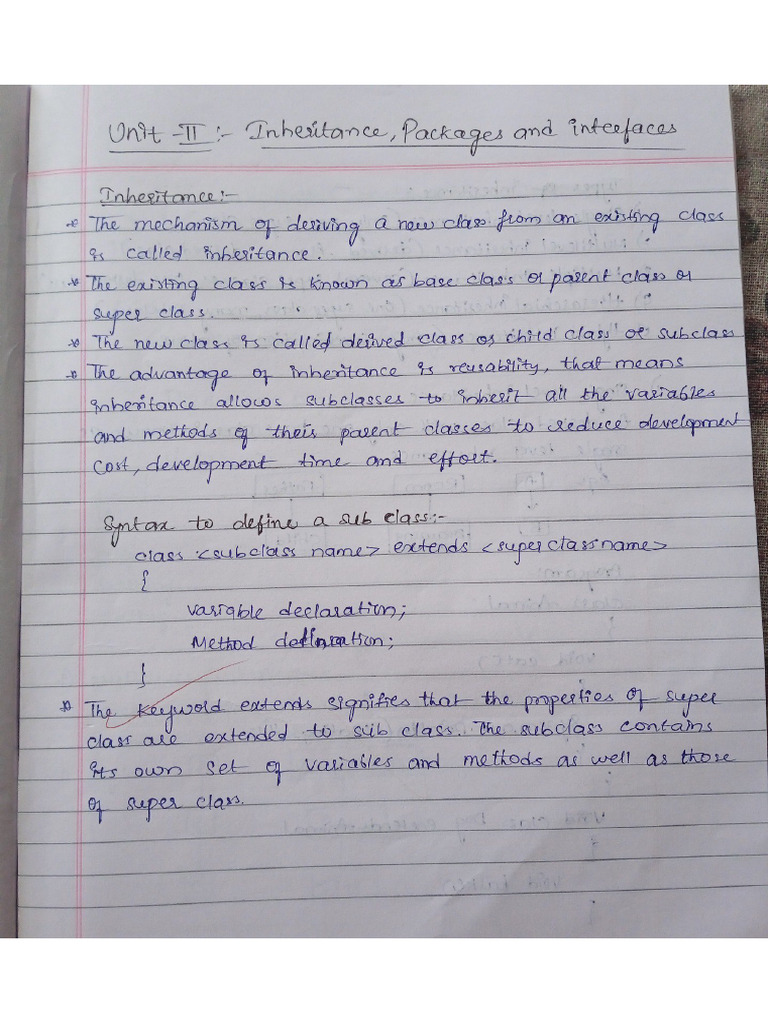 Unit -II :- Inheritance, Packages and interfaces
Inheritance:-
* The mechanism of deriving a new class from an existing class
is called inheritance.
* The existing class is known as base class or parent class or
super class.
* The new class is called derived class or child class or subclass
* The advantage of inheritance is reusability, that means
inheritance allows subclasses to inherit all the variables
and methods of their parent classes to reduce development
cost, development time and effort.
Syntax to define a sub class:-
class <subclass name> extends <superclassname>
{
variable declaration;
Method
}
* The keyword extends signifies that the properties of super
class are extended to sub class. The subclass contains
its own set of variables and methods as well as those
of super class.